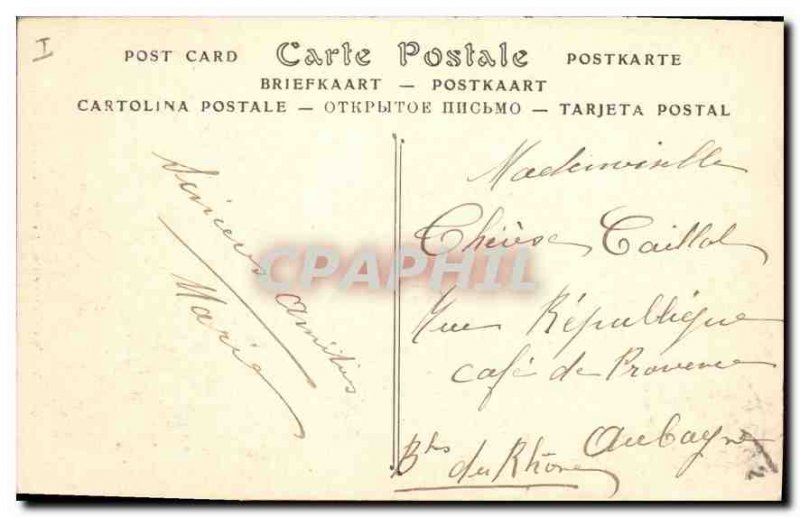 I
POST CARD Carte Postale POSTKARTE
BRIEFKAART — POSTKAART
CARTOLINA POSTALE — ОТКРЫТОЕ ПИСЬМО — TARJETA POSTAL
Sincères amitiés
Marie
Mademoiselle
Thérèse Caillol
Rue République
café de Provence
Aubagne
Bhes du Rhône
CPAPHIL